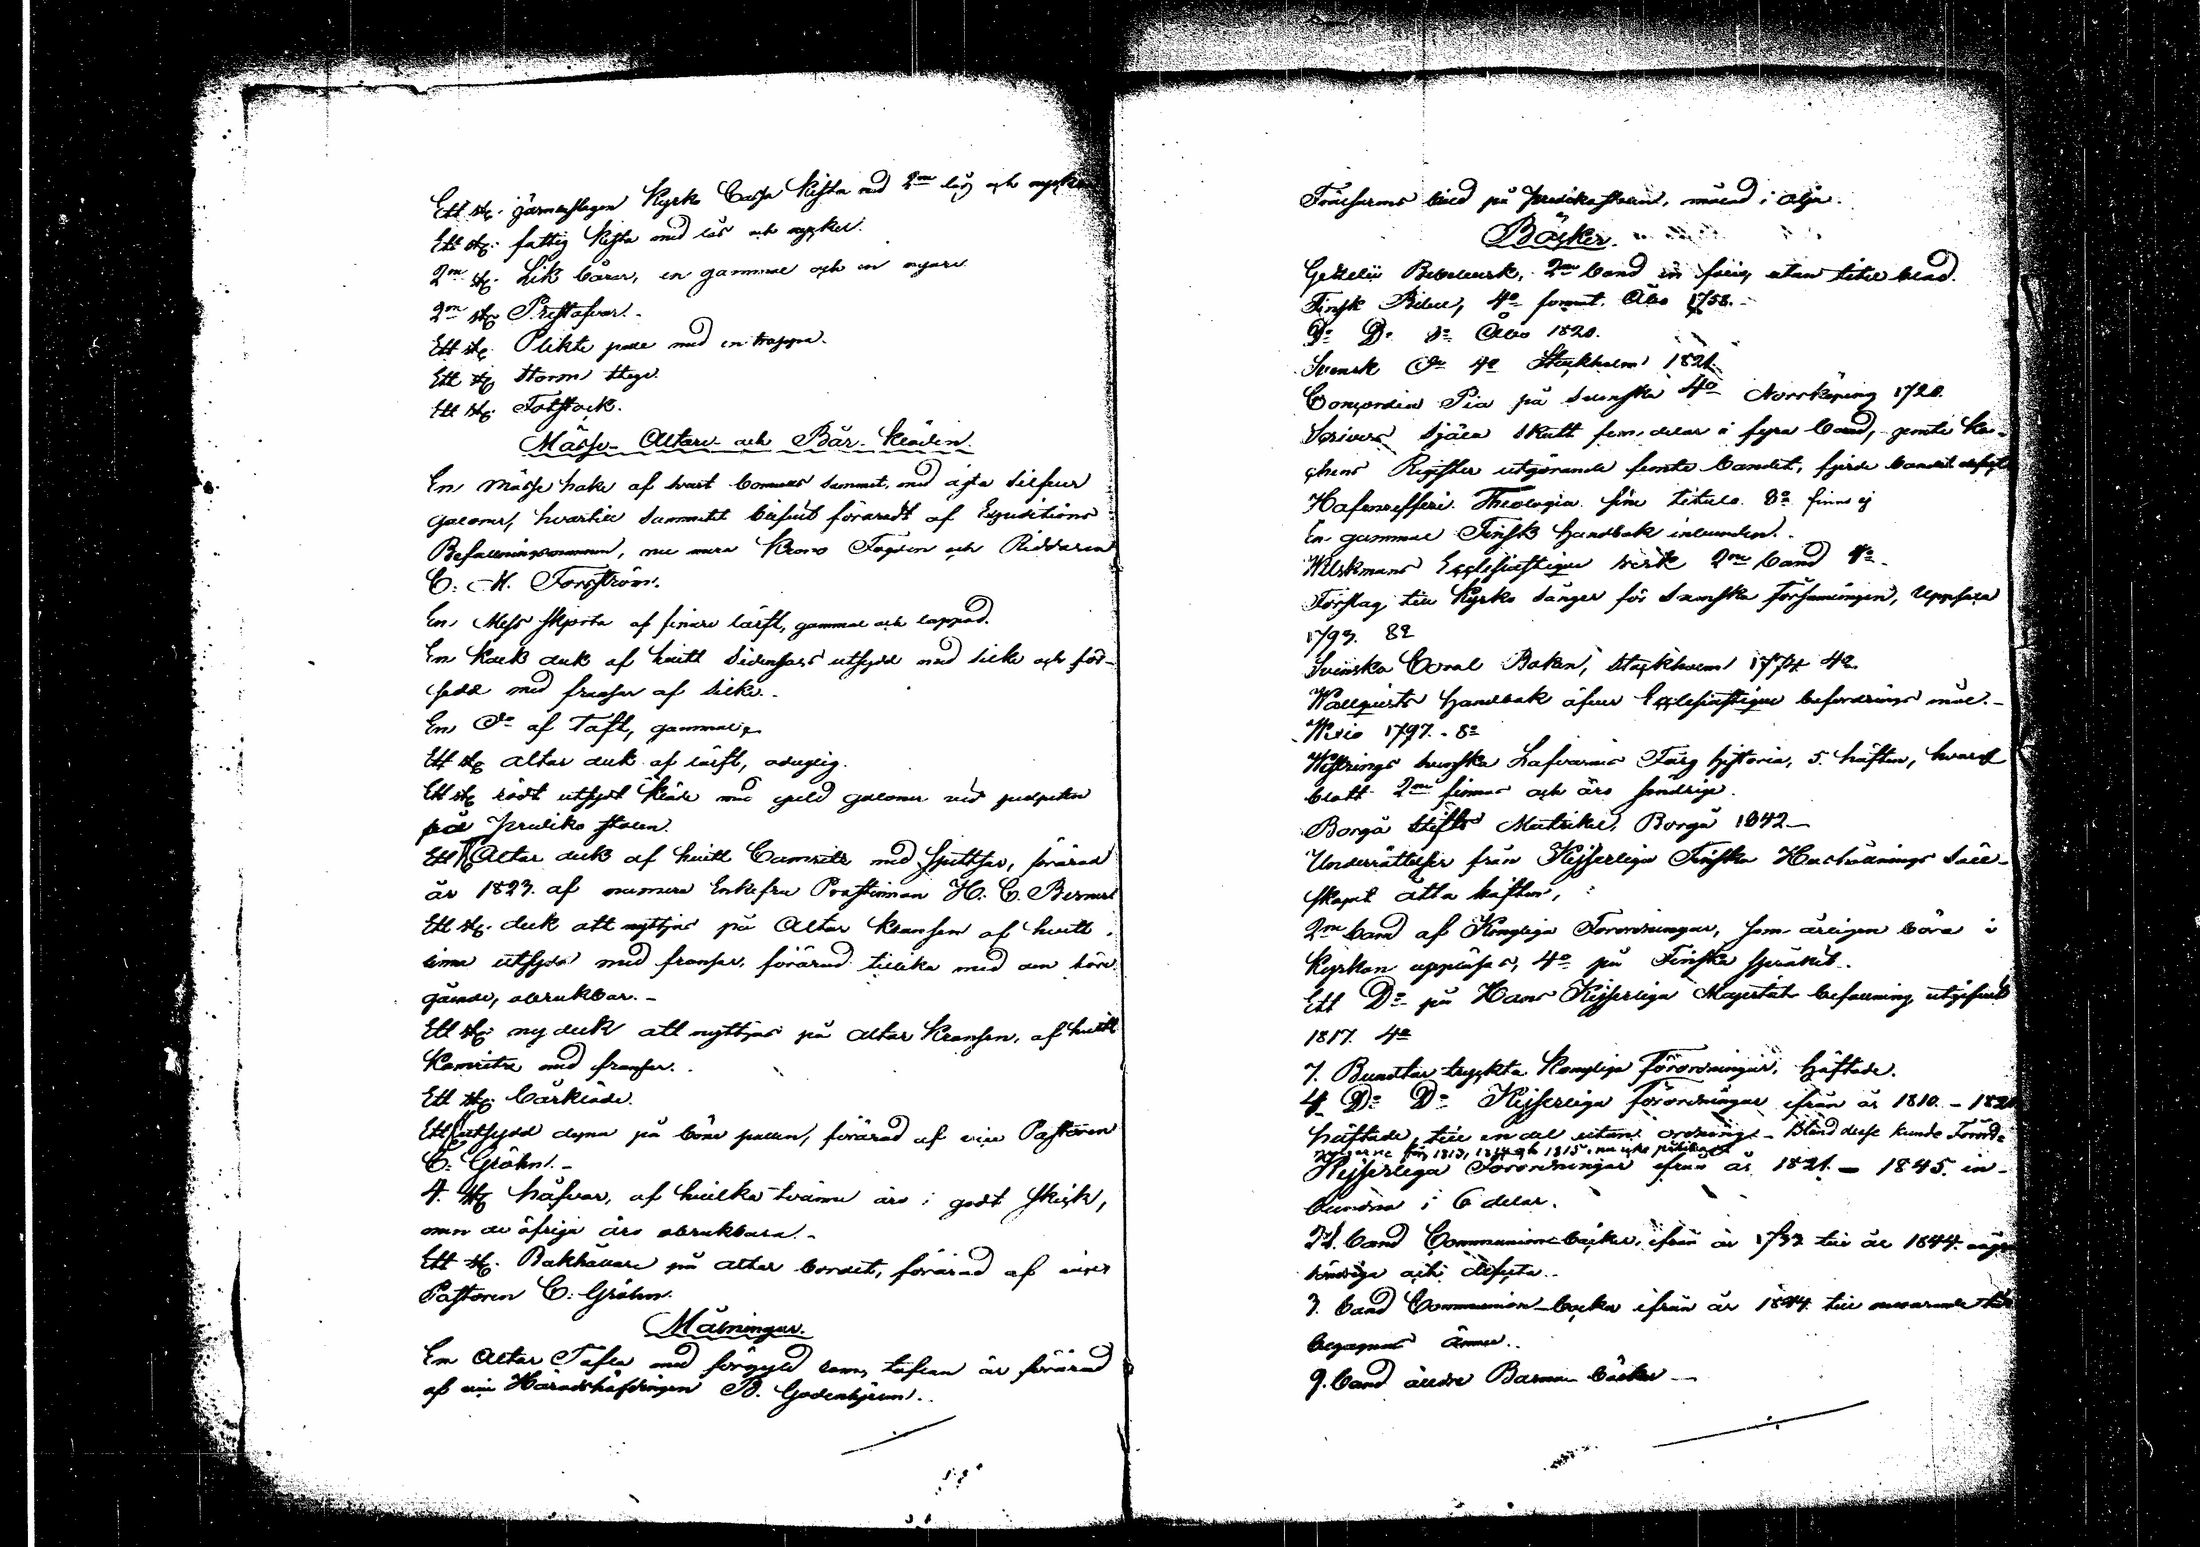 Ett st. järnbeslagen Kyrko Cassa Kista med 2ne lås och nyckel
Ett st. fattig Kista med lås och nyckel.
2ne st. Lik bårar, en gammal och en nyare
2ne st. Prestafvar.
Ett st. Plikte pall med en trappa.
Ett st. Storm stege.
Ett st. Fotstock.
Mässe- Altare- och Bår- kläden.
En Mässe hake af svart sammet med ägta silfver
galoner, hvartill sammetet blifvit förärdt af Expeditions
Befallningsmannen, nu mera Krono Fogden och Riddaren
C. M. Forsström.
En Mess skjorta af finare lärft, gammal och lappad.
En Kalk duk af hvitt Sidensars utsydd med silke och för-
sedd med fransar af silke.
En Do af Taft, gammal.
Ett st. altar duk af lärft, oduglig.
Ett st. rödt utsydt kläde med guld galoner vid pulpeten
på Prediko stolen.
Ett Altar duk af hvitt Camritz med spittsar, förärad
år 1823. af numera Enkefru Prostinnan H. C. Berner
Ett st. duk att nyttjas på Altar Kransen af hvitt
utsydd med fransar, förärad tillika med den före
gående, obrukbar.
Ett st. ny duk att nyttjas på Altar Kransen, af hvitt
Kamritz med fransar.
Ett st. bårkläde.
Ett utsydd dyna på böne pallen, förärad af vice Pastoren
C. Gröhn.
4. st. håfvar, af hvilka tvänne äro i godt skick,
men de öfriga äro obrukbara.
Ett st. på altar bordet, förärad af vice
Pastoren C. Gröhn.
Målningar.
En Altar Tafla med förgyld ram, taflan är förärad
af vice Häradshöfdingen B. Godenhjelm.
Frälsarens bild på Predikostolen, målad i olja.
Böcker.
Gezelii Bibelverk, 2ne band in folio, utan titel blad.
Finsk Bibel, 4o format. Åbo 1758.
Do Do Do Åbo 1820.
Svensk Do 4o Stockholm 1821.
Concordia Pia på Svenska 4o Norrköping 1720.
Scrivers Själa Skatt fem delar i fyra band, jemte
Register utgörande femte bandet, fjerde bandet defect
Hafenrefferi Theologia sine titulo 8o finns ej
En gammal Finsk Handbok inbunden.
Wilskmans Ecclesiastique verk 2ne band 4o
Förslag till Kyrko Sånger för Svenska församlingen, Uppsala
1793. 8o
Svenska Coral Boken, Stockholm 1774 4o.
Wallquists Handbok öfver Ecclesiastique befordrings mål.
Wexio 1797. 8o
Westrings Svenska Lafvarnes Färg historia, 5. häften, hvaraf
blott 2ne finnas och äro söndriga.
Borgå Stifts Matrikel, Borgå 1842
Underrättelser från Kejserliga Finska Hushållnings Säll-
skapet åtta häften,
2ne band af Kongliga Förordningar, som årligen böra i
Kyrkan uppläsas, 4o på Finska språket.
Ett Do på Hans Kejserliga Majestäts befallning utgifvet
1817. 4o
7. Bundtar tryckta Kongliga Förordningar, häftade.
4 Do Do Kejserliga Förordningar ifrån år 1810 - 1820
häftade, till en del utan ordning. - Bland dessa kunde Förord-
ningarne för 1813, 1814 och 1815
Kejserliga Förordningar ifrån år 1821. - 1845. in-
bundna i 6 delar.
band Communions böcker, ifrån år 1733 till år 1844.
söndriga och defecta.
3. band Communion böcker ifrån år 1844. till
begagnas ännu.
9. band äldre Barna böcker